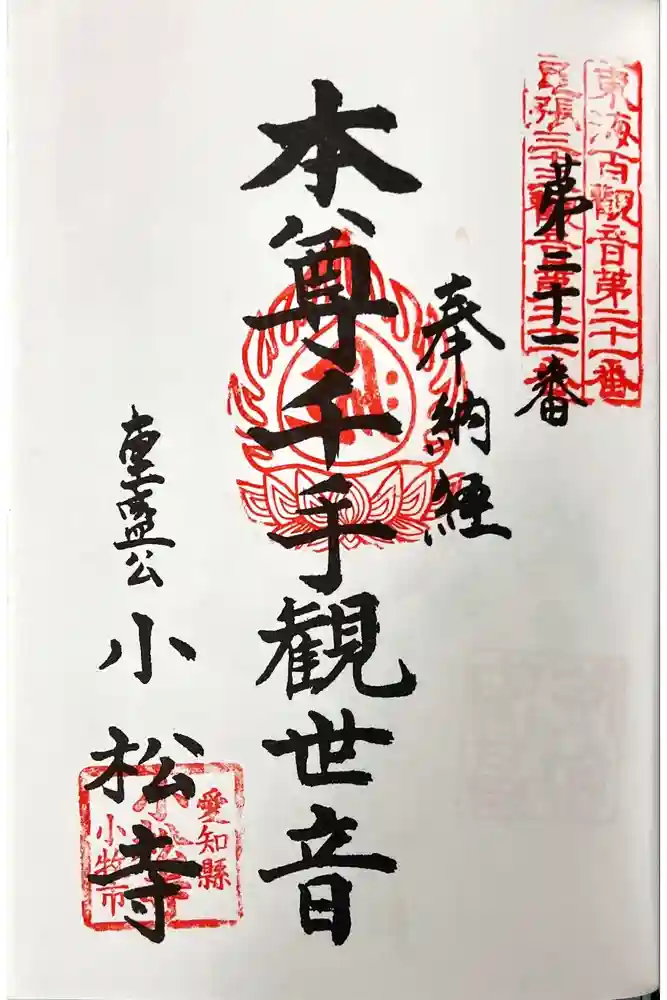 東海百観音第二十一番
尾張三十三観音第三十一番
第三十一番
奉納経
本尊千手観世音
重盛公
小松寺
愛知縣
小松寺
小牧市